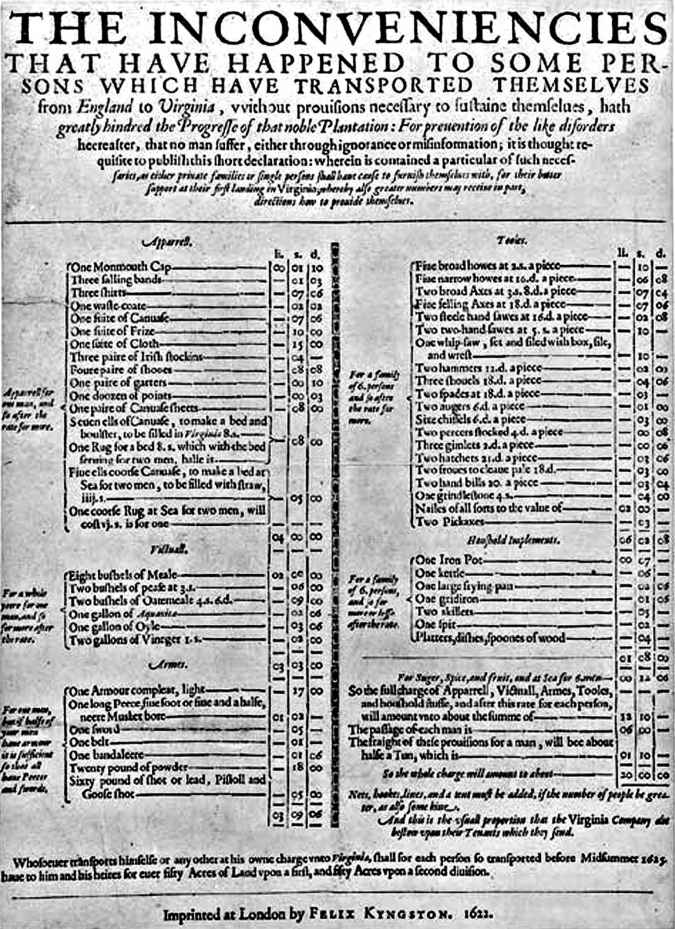 THE INCONVENIENCIES
THAT HAVE HAPPENED TO SOME PER-
SONS WHICH HAVE TRANSPORTED THEMSELVES
from England to Virginia, vvithout prouisions necessary to sustaine themselues, hath
greatly hindred the Progresse of that noble Plantation: For preuention of the like disorders
heereafter, that no man suffer, either through ignorance or misinformation; it is thought re-
quisite to publish this short declaration: wherein is contained a particular of such neces-
saries, as either private families or single persons shall haue cause to furnish themselues with, for their better
support at their first landing in Virginia; whereby also greater numbers may receiue in part,
directions how to prouide themselues.
Apparrell.
li. s. d.
Apparrell for
one man, and
so after the
rate for more.
One Monmouth Cap 00 01 10
Three falling bands — 01 03
Three shirts — 07 06
One waste-coate — 02 02
One suite of Canuase — 07 06
One suite of Frize — 10 00
One suite of Cloth — 15 00
Three paire of Irish stockins — 04 —
Foure paire of shooes — 08 08
One paire of garters — 00 10
One doozen of points — 00 03
One paire of Canuase sheets — 08 00
Seuen ells of Canuase, to make a bed and
boulster, to be filled in Virginia 8.s.
One Rug for a bed 8. s. which with the bed
seruing for two men, halfe is — 08 00
Fiue ells coorse Canuase, to make a bed at
Sea for two men, to be filled with straw,
iiij.s. — 05 00
One coorse Rug at Sea for two men, will
cost vj. s. is for one —
04 00 00
Victuall.
For a whole
yeere for one
man, and so
for more after
the rate.
Eight bushels of Meale 02 00 00
Two bushels of pease at 3.s. — 06 00
Two bushels of Oatemeale 4.s. 6.d. — 09 00
One gallon of Aquauitæ — 02 06
One gallon of Oyle — 03 06
Two gallons of Vineger 1. s. — 02 00
03 03 00
Armes.
For one man,
but if halfe of
your men
haue armour
it is sufficient
so that all
haue Peeces
and swords.
One Armour compleat, light — 17 00
One long Peece, fiue foot or fiue and a halfe,
neere Musket bore 01 02 —
One sword — 05 —
One belt — 01 —
One bandaleere — 01 06
Twenty pound of powder — 18 00
Sixty pound of shot or lead, Pistoll and
Goose shot — 05 00
03 09 06
Tooles.
li. s. d.
For a family
of 6. persons
and so after
the rate for
more.
Fiue broad howes at 2.s. a piece — 10 —
Fiue narrow howes at 16.d. a piece — 06 08
Two broad Axes at 3.s. 8.d. a piece — 07 04
Fiue felling Axes at 18.d. a piece — 07 06
Two steele hand sawes at 16.d. a piece — 02 08
Two two-hand sawes at 5. s. a piece — 10 —
One whip-saw, set and filed with box, file,
and wrest — 10 —
Two hammers 12.d. a piece — 02 00
Three shouels 18.d. a piece — 04 06
Two spades at 18.d. a piece — 03 —
Two augers 6.d. a piece — 01 00
Sixe chissels 6.d. a piece — 03 00
Two percers stocked 4.d. a piece — 00 08
Three gimlets 2.d. a piece — 00 06
Two hatchets 21.d. a piece — 03 06
Two froues to cleaue pale 18.d. — 03 00
Two hand bills 20. a piece — 03 04
One grindlestone 4.s. — 04 00
Nailes of all sorts to the value of 02 00 —
Two Pickaxes — 03 —
06 02 08
Houshold Implements.
For a family
of 6. persons,
and so for
more or lesse
after the rate.
One Iron Pot 00 07 —
One kettle — 06 —
One large frying pan — 02 06
One gridiron — 01 06
Two skillets — 05 —
One spit — 02 —
Platters, dishes, spoones of wood — 04 —
01 08 00
For Suger, Spice, and fruit, and at Sea for 6.men 00 12 06
So the full charge of Apparrell, Victuall, Armes, Tooles,
and houshold stuffe, and after this rate for each person,
will amount vnto about the summe of 12 10 —
The passage of each man is 06 00 —
The fraight of these prouisions for a man, will bee about
halfe a Tun, which is 01 10 —
So the whole charge will amount to about 20 00 00
Nets, hookes, lines, and a tent must be added, if the number of people be grea-
ter, as also some kine.
And this is the vsuall proportion that the Virginia Company doe
bestow vpon their Tenants which they send.
Whosoeuer transports himselfe or any other at his owne charge vnto Virginia, shall for each person so transported before Midsummer 1625.
haue to him and his heires for euer fifty Acres of Land vpon a first, and fifty Acres vpon a second diuision.
Imprinted at London by FELIX KYNGSTON. 1622.